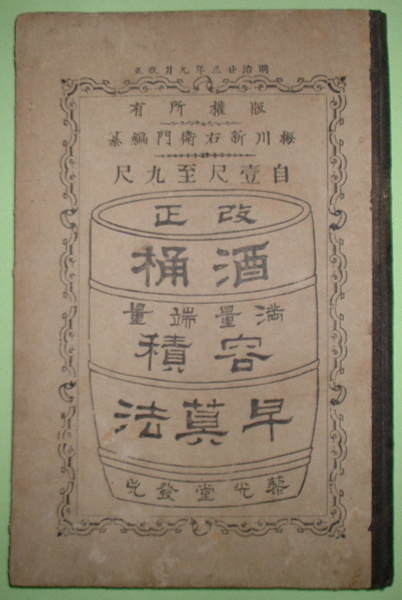 明治廿三年九月改正
版權所有
梅川新右衛門編纂
自壹尺至九尺
改正
酒桶
満量端量
容積
早算法
光堂發